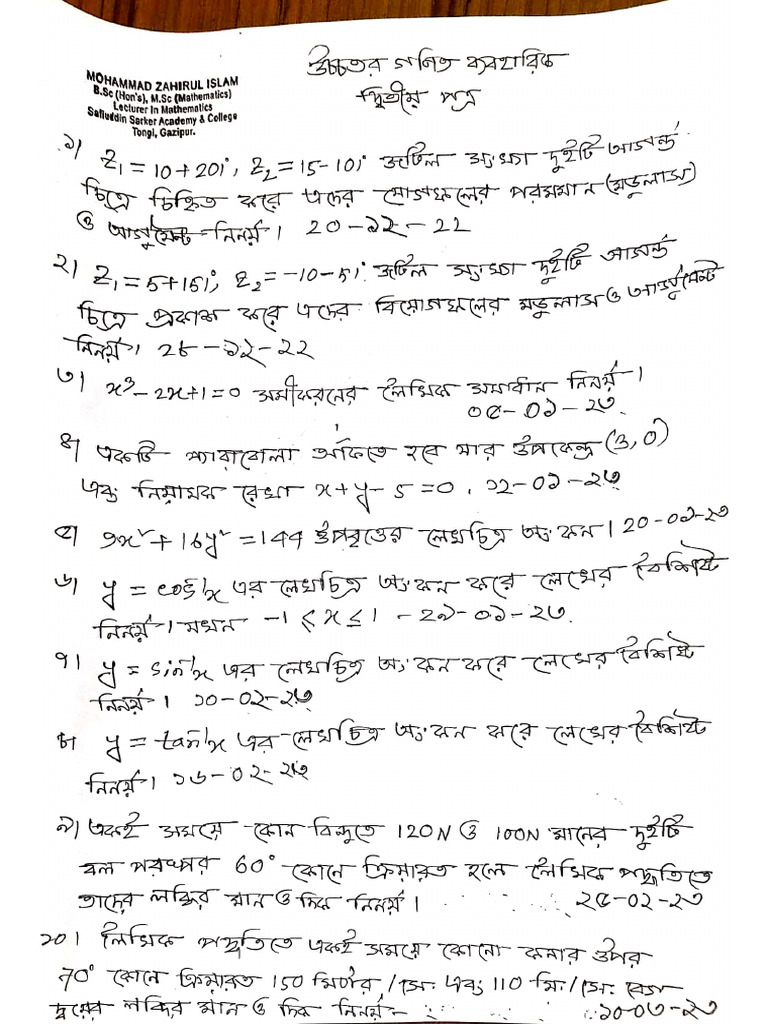 উচ্চতর গণিত ব্যবহারিক
দ্বিতীয় পত্র
MOHAMMAD ZAHIRUL ISLAM
B.Sc (Hon's), M.Sc (Mathematics)
Lecturer In Mathematics
Safiuddin Sarker Academy & College
Tongi, Gazipur.
১) Z₁ = 10+20i, Z₂ = 15-10i জটিল সংখ্যা দুইটি আর্গন্ড
চিত্রে চিহ্নিত করে এদের যোগফলের পরমমান (মডুলাস)
ও আর্গুমেন্ট নির্নয়। 20-১২-22
২) Z₁ = 5+15i, Z₂ = -10-5i জটিল সংখ্যা দুইটি আর্গন্ড
চিত্রে প্রকাশ করে এদের বিয়োগফলের মডুলাস ও আর্গুমেন্ট
নির্নয়। ২৮-১২-২২
৩) x³-2x+1=0 সমীকরনের লৈখিক সমাধান নির্নয়।
০৫-০১-২৩
৪) একটি প্যারাবোলা আঁকতে হবে যার উপকেন্দ্র (3,0)
এবং নিয়ামক রেখা x+y-5=0. ১২-০১-২৩
৫) 9x²+16y²=144 উপবৃত্তের লেখচিত্র অংকন। 20-০১-২৩
৬) y = cos⁻¹x এর লেখচিত্র অংকন করে লেখের বৈশিষ্ট
নির্নয়। যখন -1≤x≤1 - ২৯-০১-২৩.
৭) y = sin⁻¹x এর লেখচিত্র অংকন করে লেখের বৈশিষ্ট
নির্নয়। ১০-০২-২৩
৮) y = tan⁻¹x এর লেখচিত্র অংকন করে লেখের বৈশিষ্ট
নির্নয়। ১৬-০২-২৩
৯) একই সময়ে কোন বিন্দুতে 120N ও 100N মানের দুইটি
বল পরস্পর 60° কোনে ক্রিয়ারত হলে লৈখিক পদ্ধতিতে
তাদের লব্ধির মান ও দিক নির্নয়। ২৫-০২-২৩
১০। লৈখিক পদ্ধতিতে একই সময়ে কোনো কনার উপর
70° কোনে ক্রিয়ারত 150 মিটার/সে. এবং 110 মি./সে. বেগ
দ্বয়ের লব্ধির মান ও দিক নির্নয়- ১০-০৩-২৩